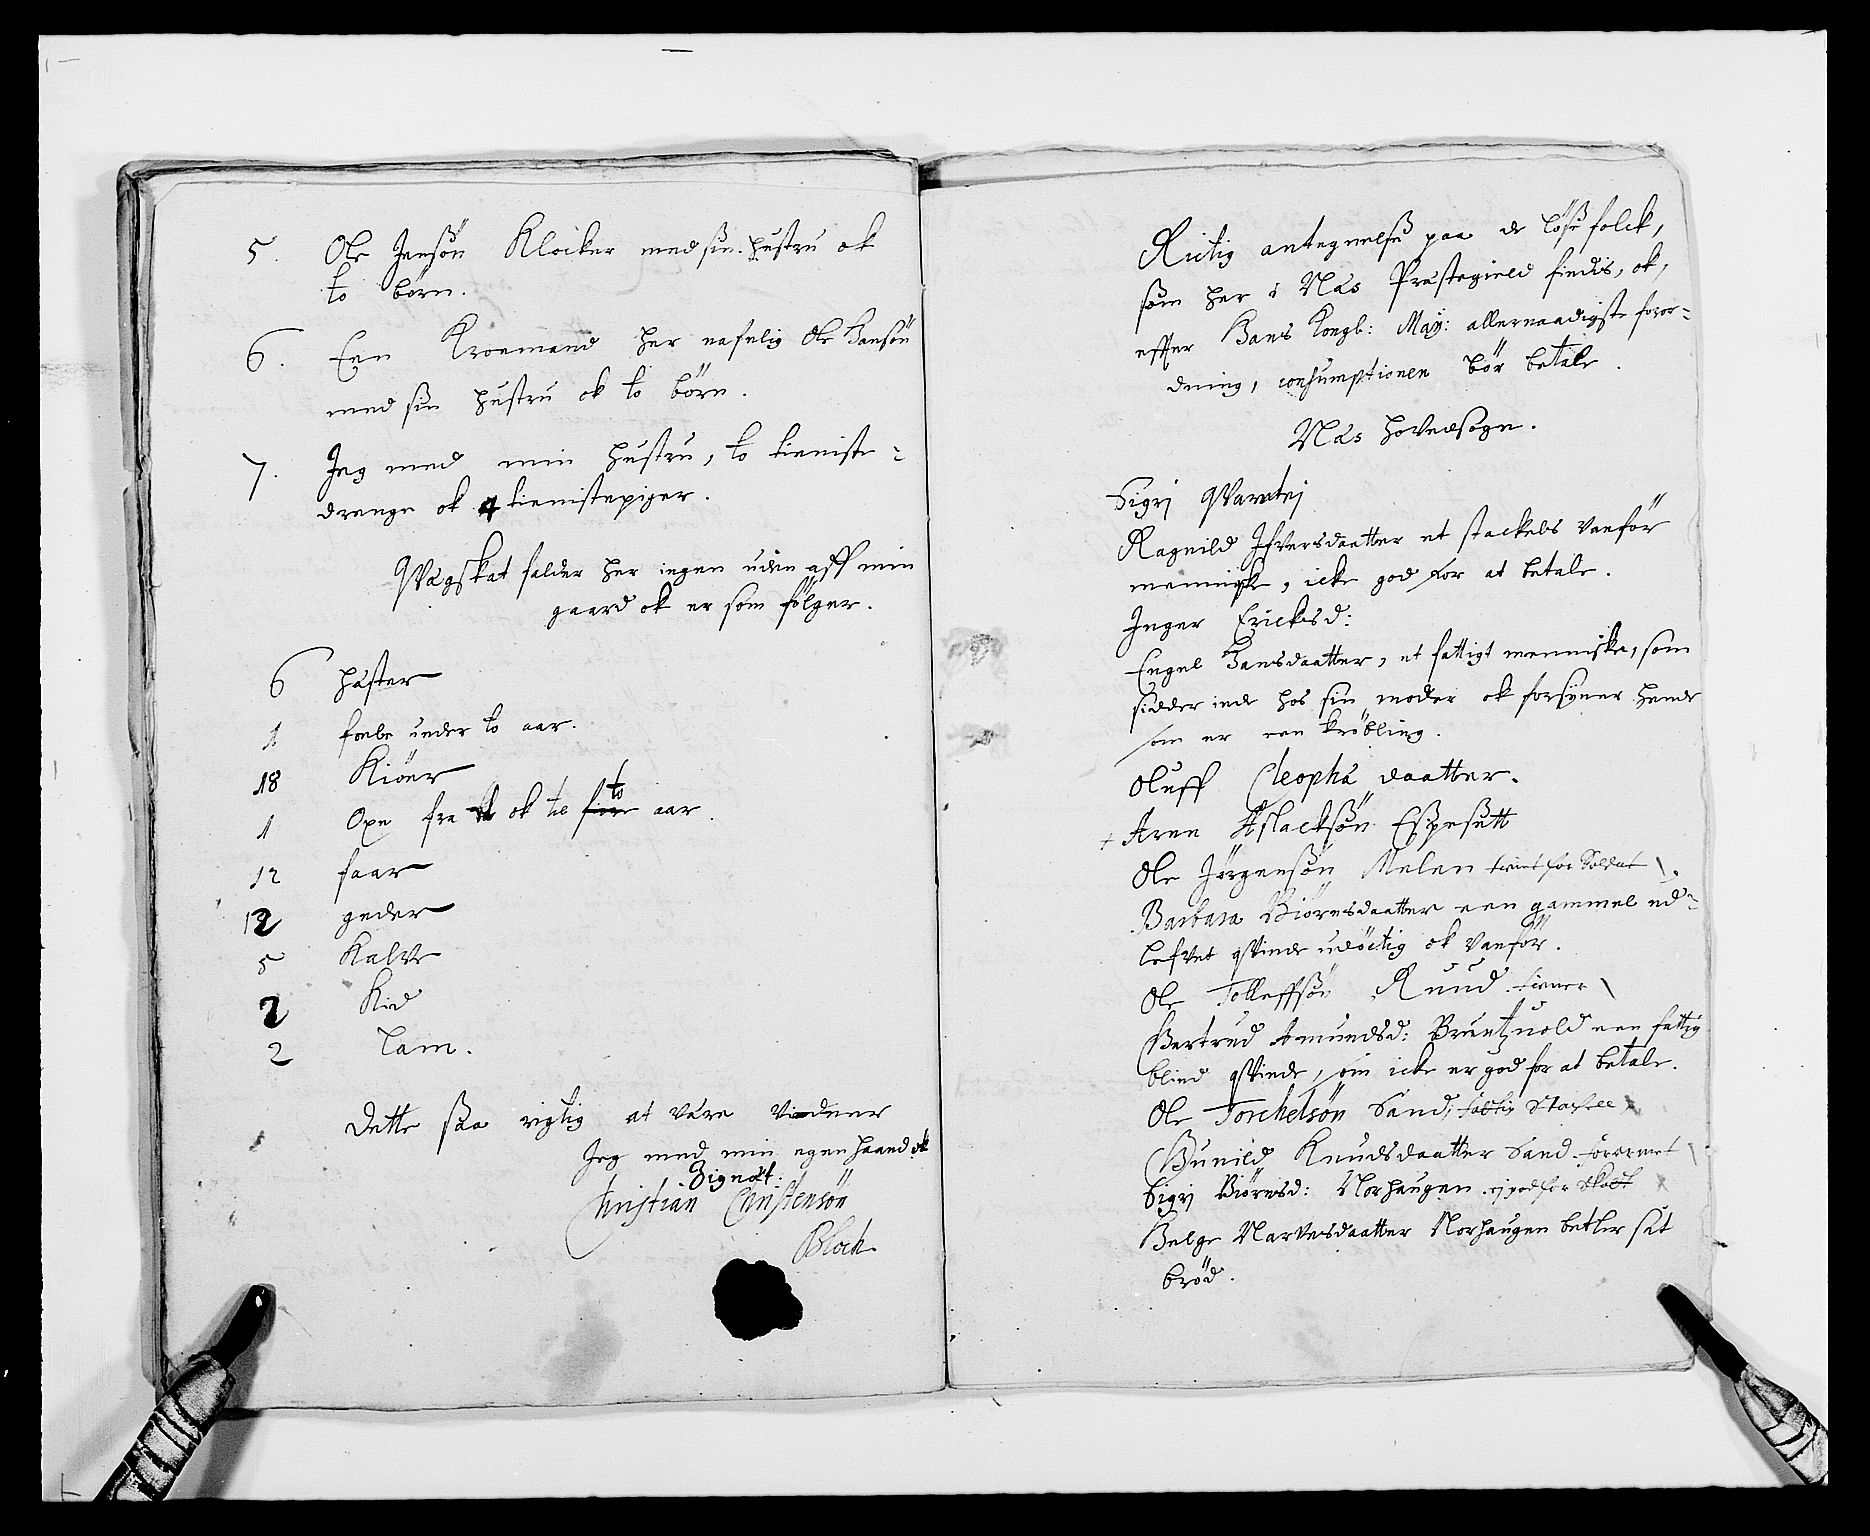 5. Ole Jensön Klocker med sin hustru ok
to börn.
6. Een Kroemand her nafnlig Ole Hansön
med sin hustru ok to börn.
7. Jeg med min hustru, to tieniste-
drenge ok 4 tienistepiger.
Qvægskat falder her ingen uden aff min
gaard ok er som fölger.
6 hæster
1 foele under to aar.
18 Kiöer
1 Oxe fra ok til fire to aar
12 faar
12 geder
5 Kalve
2 Kid
2 Lam.
Dette saa rigtig at være vidner
Jeg med min egen haand ok
Signet:
Christian Christensön
Bloch.
Rictig antegnelse paa de löse folck,
som her i Næs Præstegield findis, ok,
effter Hans Kongl: May: allernaadigste foror-
dning, consumptionen bör betale.
Næs hovedsogn.
Sigri
Ragnild Ifversdaatter et stackels vanför
menniske, icke god for at betale.
Inger Ericksd:
Engel Hansdaatter, et fattigt menniske, som
sidder inde hos sin moder ok forsyner hende
som er een kröbling.
Oluff Cleophæ daatter.
+ Aren Aslacksön Espesett
Ole Jörgensön Melen tient for Soldat
Barbara Biörnsdaatter een gammel ud-
lefvet qvinde udöctig ok vanför.
Ole Tolleffsön Ruud. tiener
Bertrud Amundsd: Bruntzvold een fattig
blind qvinde, som icke er god for at betale.
Ole Torchelsön Sand,
Gunild Knudsdaatter Sand.
Sigri Biörnsd: Norhaugen. ej god for skatt
Helge Narvesdaatter Norhaugen betler sit
bröd.